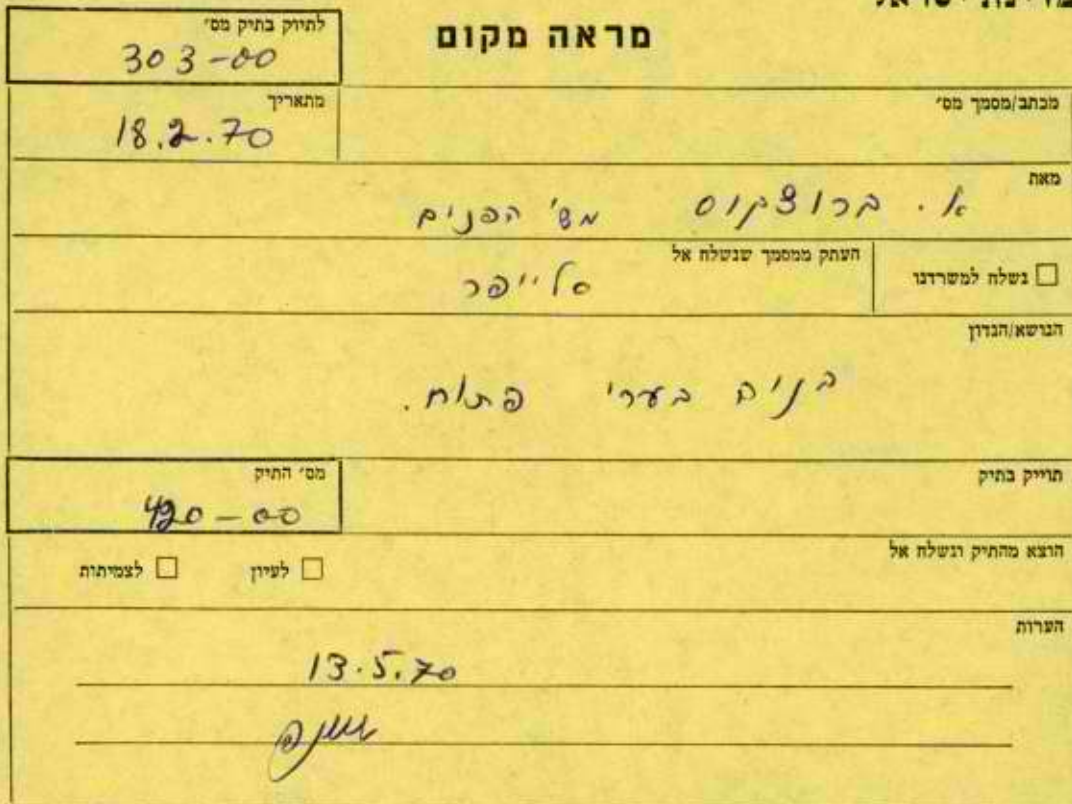 מדינת ישראל
מראה מקום
לתיוק בתיק מס׳
303-00
מכתב/מסמך מס׳
מתאריך
18.2.70
מאת
א. ברוצקוס מש' הפנים
נשלח למשרדנו
העתק ממסמך שנשלח אל
סלייפר
הנושא/הנדון
בניה בערי פתוח.
תוייק בתיק
מס׳ התיק
420-00
הוצא מהתיק ונשלח אל
לעיון
לצמיתות
הערות
13.5.70